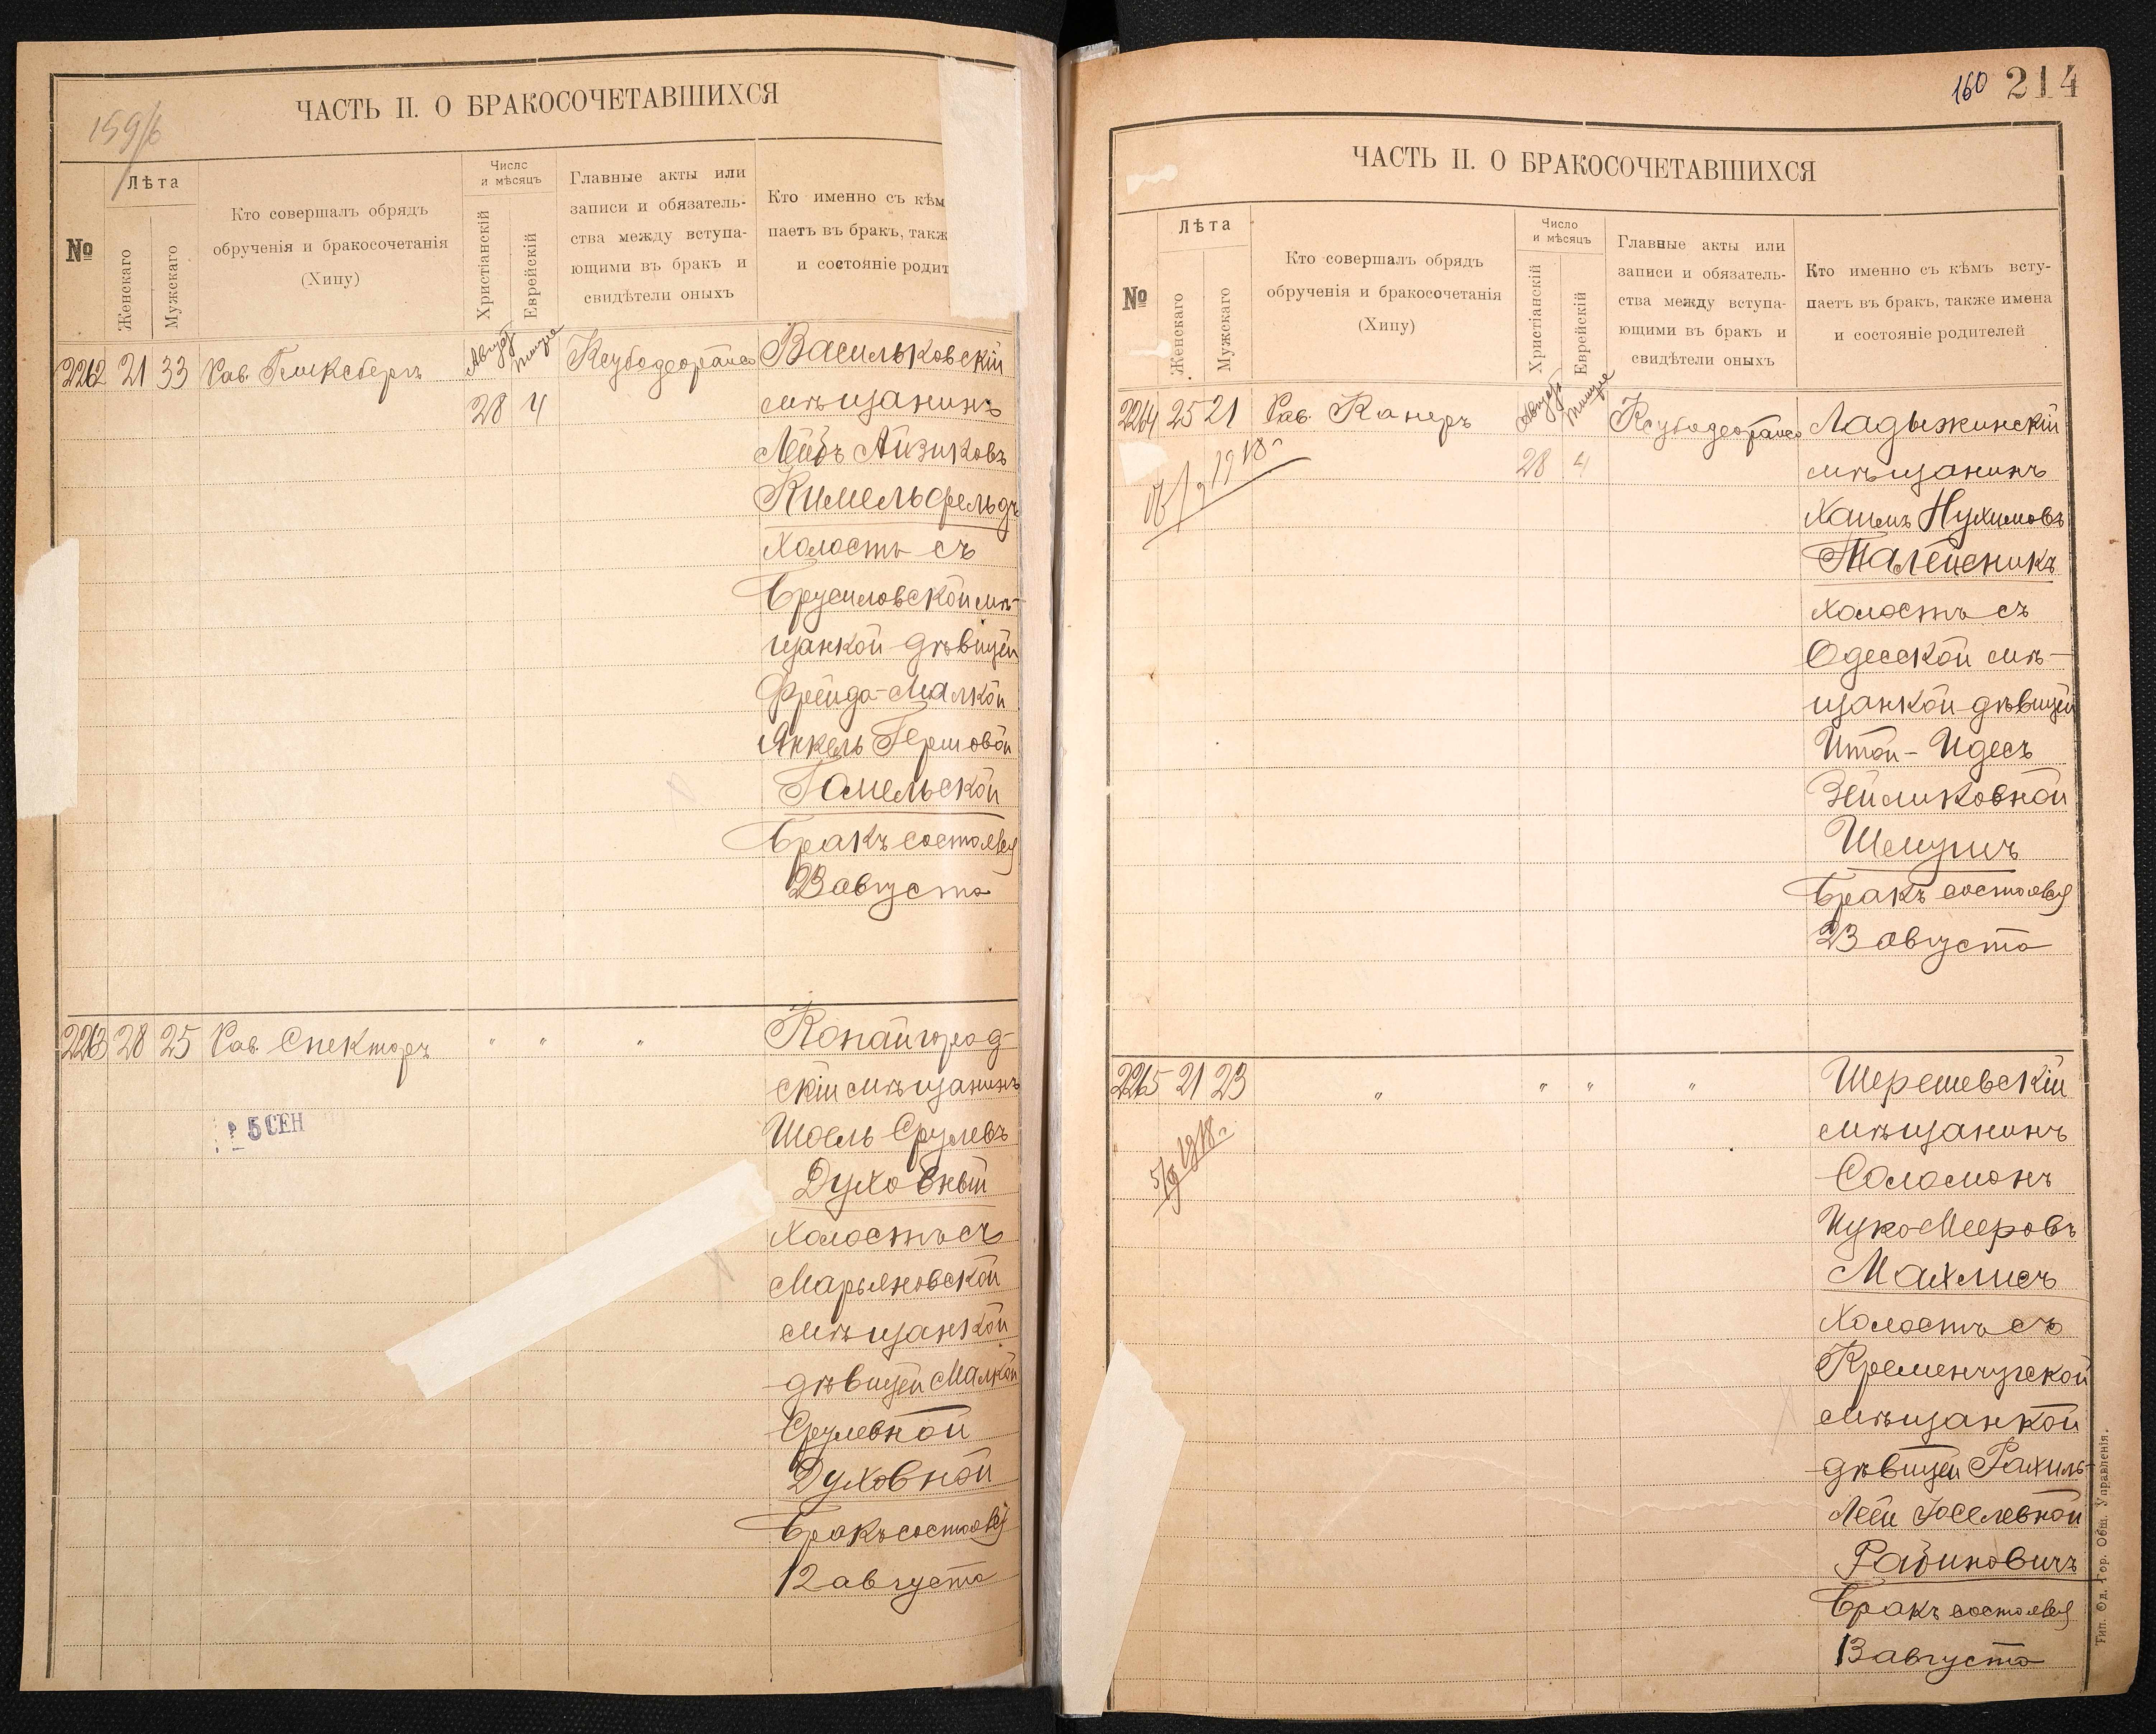 159/б
ЧАСТЬ II. О БРАКОСОЧЕТАВШИХСЯ
№
Лѣта
Женскаго
Мужскаго
Кто совершалъ обрядъ
обрученія и бракосочетанія
(Хипу)
Число
и мѣсяцъ
Христіанскій
Еврейскій
Главные акты или
записи и обязатель-
ства между вступа-
ющими въ бракъ и
свидѣтели оныхъ
Кто именно съ кѣм
паетъ въ бракъ, такж
и состояніе родит
2262 21 33 Рав.
Августъ
28 4
Васильковскій
мѣщанинъ
Лейбъ Айзиковъ
Кимельфельдъ
холостъ съ
Брусиловской мѣ-
щанкой дѣвицей
Фрейда-Малкой
Янкель Гершовой
Гомельской
Бракъ состоялся
23 августа
2263 28 25 Рав. Спекторъ " " "
Копайгород-
скій мѣщанинъ
Шоель Срулевъ
Духовный
холостъ съ
Марьяновской
мѣщанкой
дѣвицей Малкой
Срулевной
Духовной
Бракъ состоялся
12 августа
5 СЕН
160 214
ЧАСТЬ II. О БРАКОСОЧЕТАВШИХСЯ
№
Лѣта
Женскаго
Мужскаго
Кто совершалъ обрядъ
обрученія и бракосочетанія
(Хипу)
Число
и мѣсяцъ
Христіанскій
Еврейскій
Главные акты или
записи и обязатель-
ства между вступа-
ющими въ бракъ и
свидѣтели оныхъ
Кто именно съ кѣмъ всту-
паетъ въ бракъ, также имена
и состояніе родителей
2264 25 21 Рав. Канеръ
Августъ
28 4
Ладыжинскій
мѣщанинъ
Хаимъ Нухимовъ
Талейсникъ
холостъ съ
Одесской мѣ-
щанкой дѣвицей
Итой-Идесъ
Зейликовной
Шемушъ
Бракъ состоялся
23 августа
2265 21 23 " " " "
5/9 1918 г.
Шерешевскій
мѣщанинъ
Соломонъ
Ицко-Мееровъ
Махлисъ
холостъ съ
Кременчугской
мѣщанкой
дѣвицей Рахиль-
Леей Іоселевной
Рабиновичъ
Бракъ состоялся
13 августа
Тип. Од. Гор. Общ. Управленія.